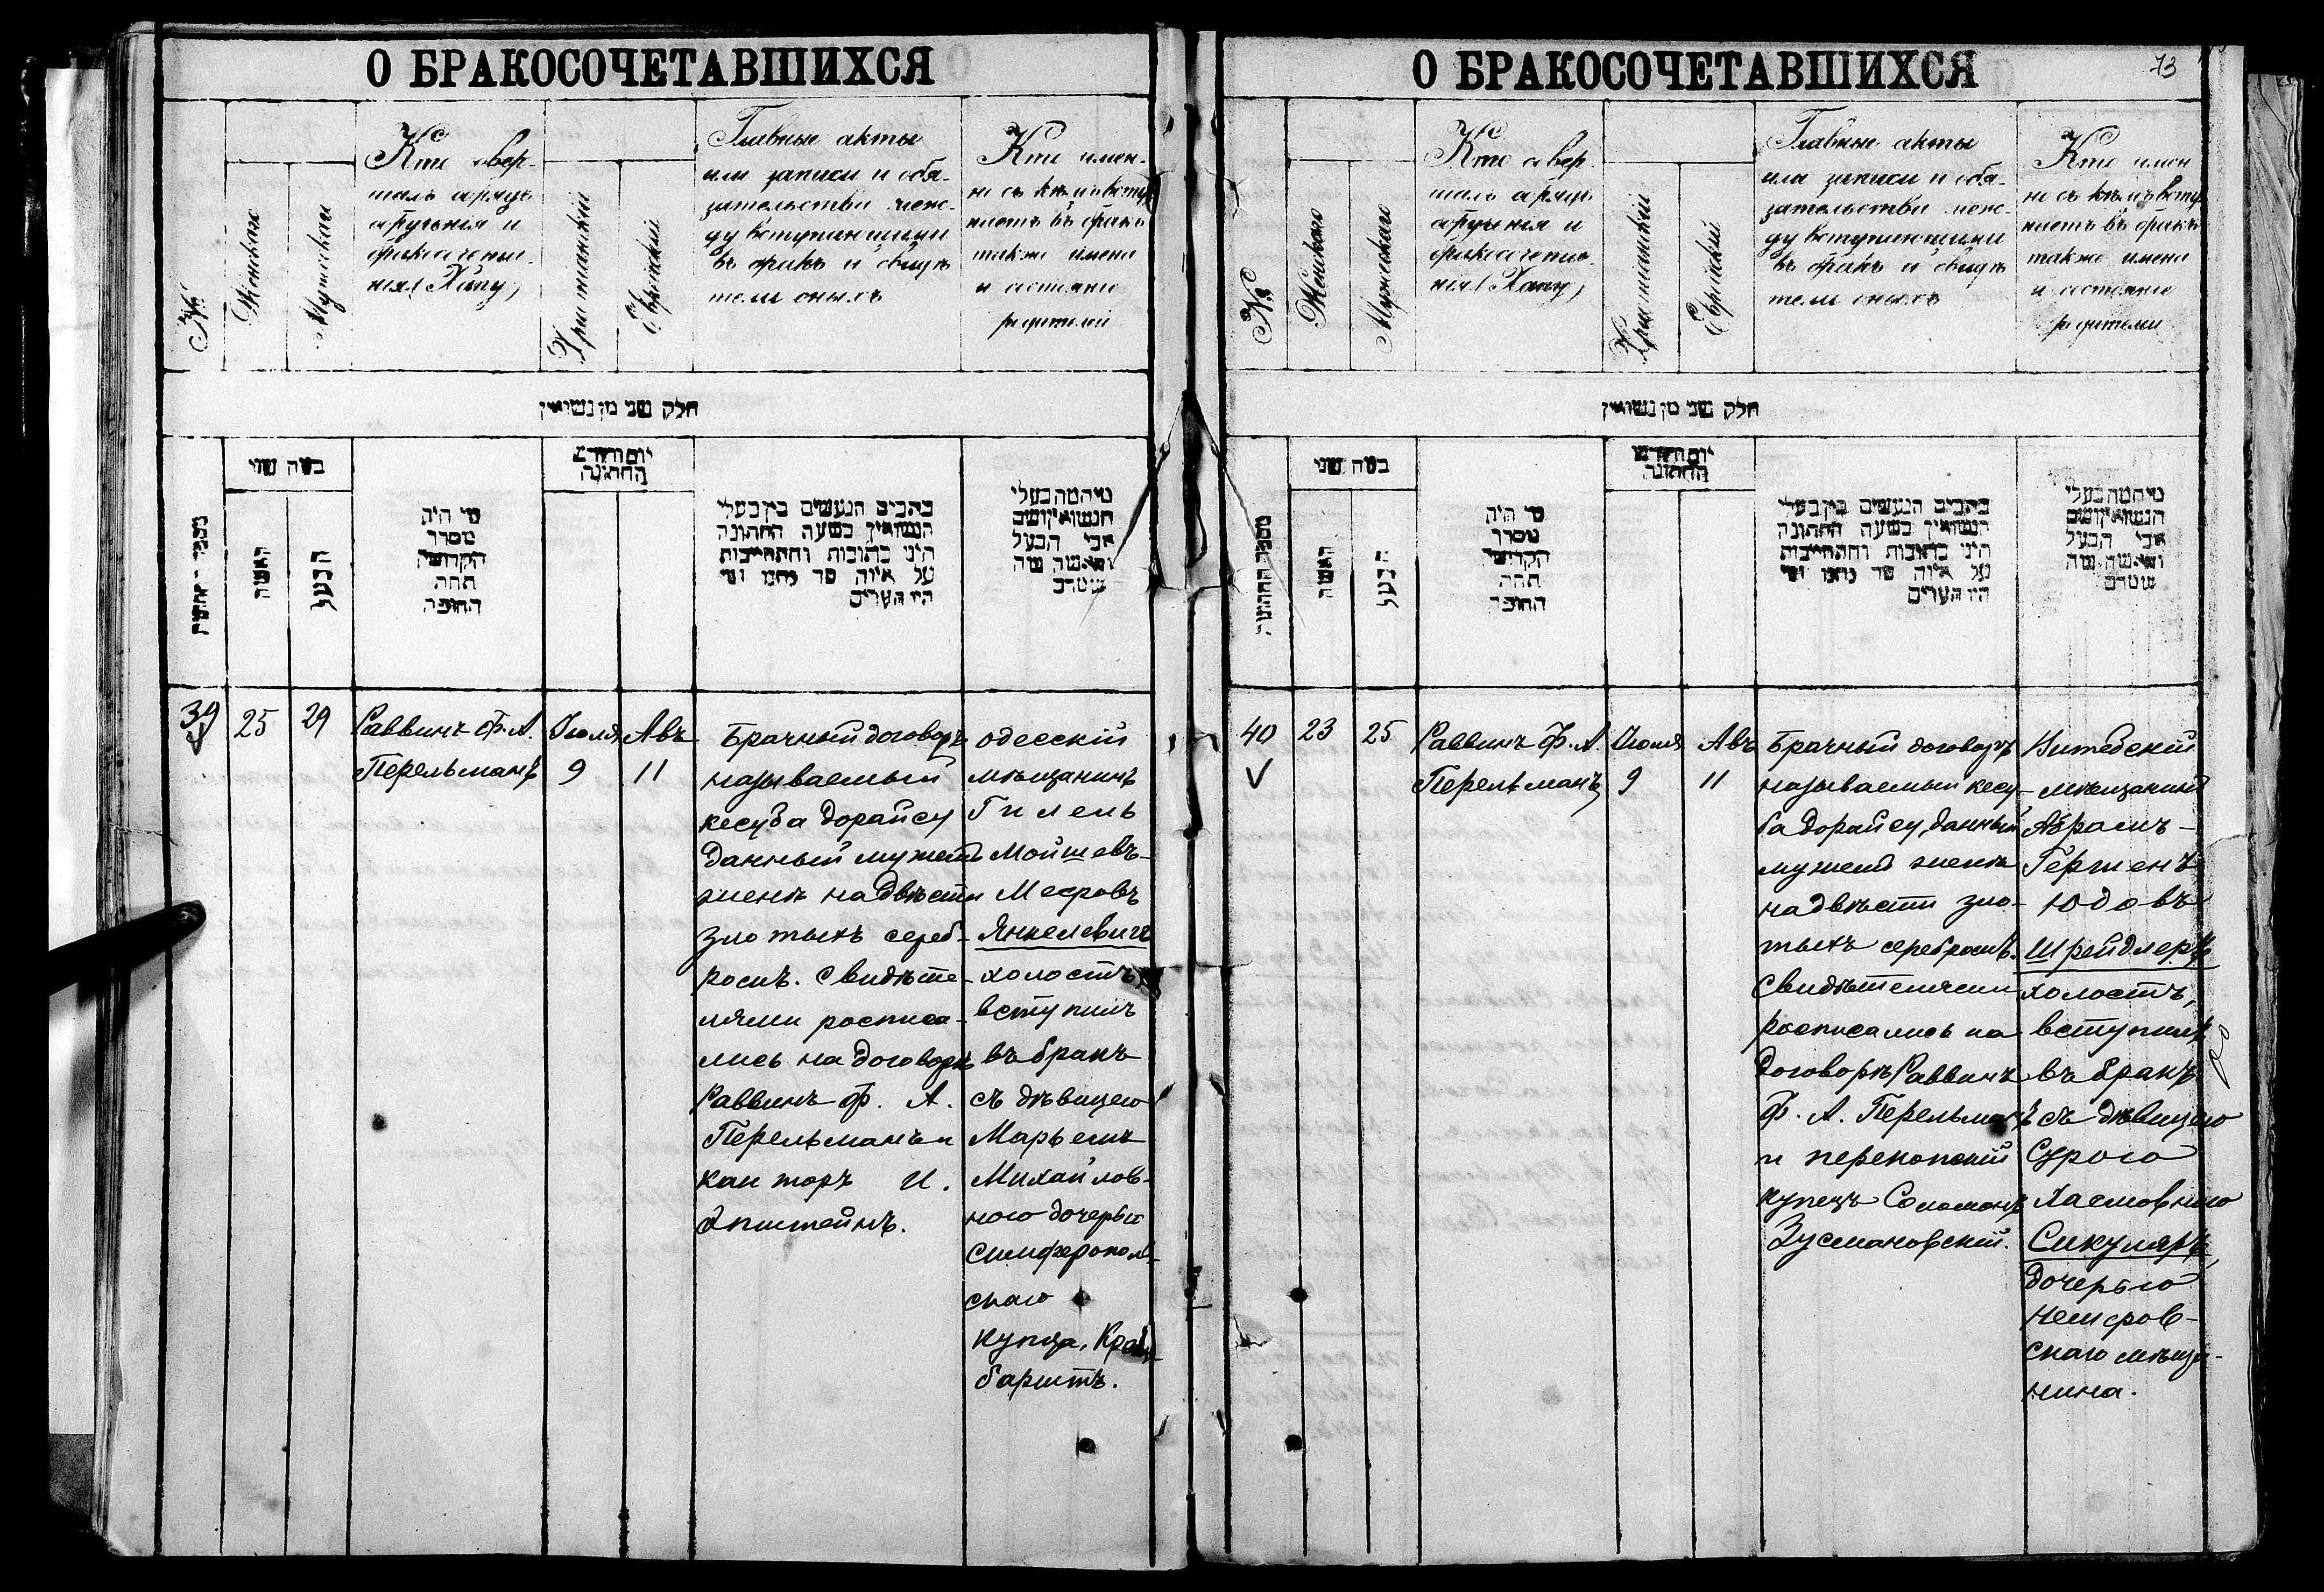 О БРАКОСОЧЕТАВШИХСЯ
№
Женскаго
Мужескаго
Кто совер-
шалъ обрядъ
обрученія и
бракосочета-
нія (Хупу)
Христіанскій
Еврейскій
Главные акты
или записи и обя-
зательства меж-
ду вступающими
въ бракъ и свидѣ
тели оныхъ
Кто имен-
но съ кѣмъ всту
паетъ въ бракъ
также имена
и состояніе
родителей
חלק שני מן נשואין
כמה שני
האשה
הבעל
מי היה
מסדר
הקדושין
תחת
החופה
יום וחודש
החתונה
כתבים הנעשים בין בעלי
הנשואין בשעה החתונה
היני כתובות והתחייבות
על איזה סך נתנו ומי
היו העדים
מי המה בעלי
הנשואין ושם
אבי הבעל
והאשה
39
25
29
Раввинъ Ф. А.
Перельманъ
Іюля
9
Авъ
11
Брачный договоръ
называемый
кесуба дорайсу
данный мужемъ
женѣ на двѣсти
злотыхъ сереб-
ромъ. Свидѣте-
лями росписа-
лись на договорѣ
Раввинъ Ф. А.
Перельманъ и
канторъ И.
Эпштейнъ.
одесскій
мѣщанинъ
Гилель
Мойшевъ-
Мееровъ
Янкелевичъ
холостъ,
вступилъ
въ бракъ
съ дѣвицею
Марьемъ
Михайлов-
ною дочерью
симферополь-
скаго
купца,
баритъ.
О БРАКОСОЧЕТАВШИХСЯ
73
№
Женскаго
Мужескаго
Кто совер-
шалъ обрядъ
обрученія и
бракосочета-
нія (Хупу)
Христіанскій
Еврейскій
Главные акты
или записи и обя-
зательства меж-
ду вступающими
въ бракъ и свидѣ
тели оныхъ
Кто имен
но съ кѣмъ всту
паетъ въ бракъ
также имена
и состояніе
родителей
חלק שני מן נשואין
מספר החתונה
כמה שני
האשה
הבעל
מי היה
מסדר
הקדושין
תחת
החופה
יום וחודש
החתונה
כתבים הנעשים בין בעלי
הנשואין בשעה החתונה
היני כתובות והתחייבות
על איזה סך נתנו ומי
היו העדים
מי המה בעלי
הנשואין ושם
אבי הבעל
והאשה
40
23
25
Раввинъ Ф. А.
Перельманъ
Іюля
9
Авъ
11
Брачный договоръ
называемый кесу-
ба дорайсу, данный
мужемъ женѣ
на двѣсти зло-
тыхъ серебромъ.
Свидѣтелями
росписались на
договорѣ Раввинъ
Ф. А. Перельманъ
и перекопскій
купецъ Соломонъ
Зусмановскій.
Витебскій
мѣщанинъ
Абрамъ-
Гершенъ
Юдовъ
Шрейдлеръ
холостъ,
вступилъ
въ бракъ
съ дѣвицею
Сурою
Хаемовною
Сикуляръ,
дочерью
немиров-
скаго мѣща-
нина.